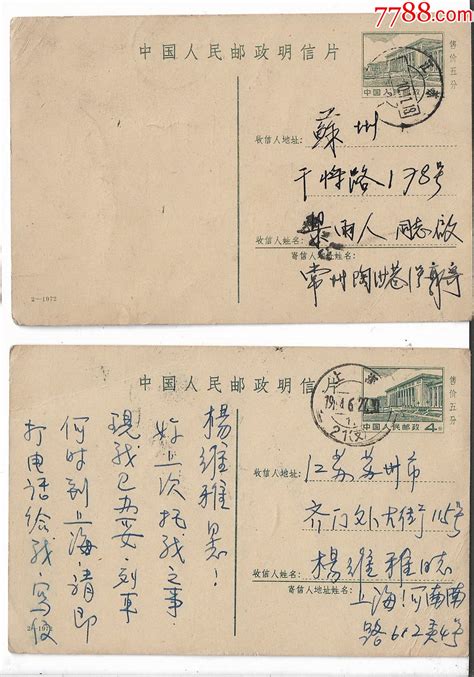 7788.com
中国人民邮政明信片
售价五分
中国人民邮政
收信人地址：
蘇州
干将路178号
雨人同志啟
收信人姓名：
寄信人地址姓名：
常州
2—1972
中国人民邮政明信片
售价五分
上海
中国人民邮政 4分
楊維雅同志！
上次托我之事
現我已办妥，列車
何时到上海，请即
打电话给我，
收信人地址：
江苏苏州市
齐门外大街115号
楊維雅同志
收信人姓名：
寄信人地址姓名：
上海河南南
路602弄4号